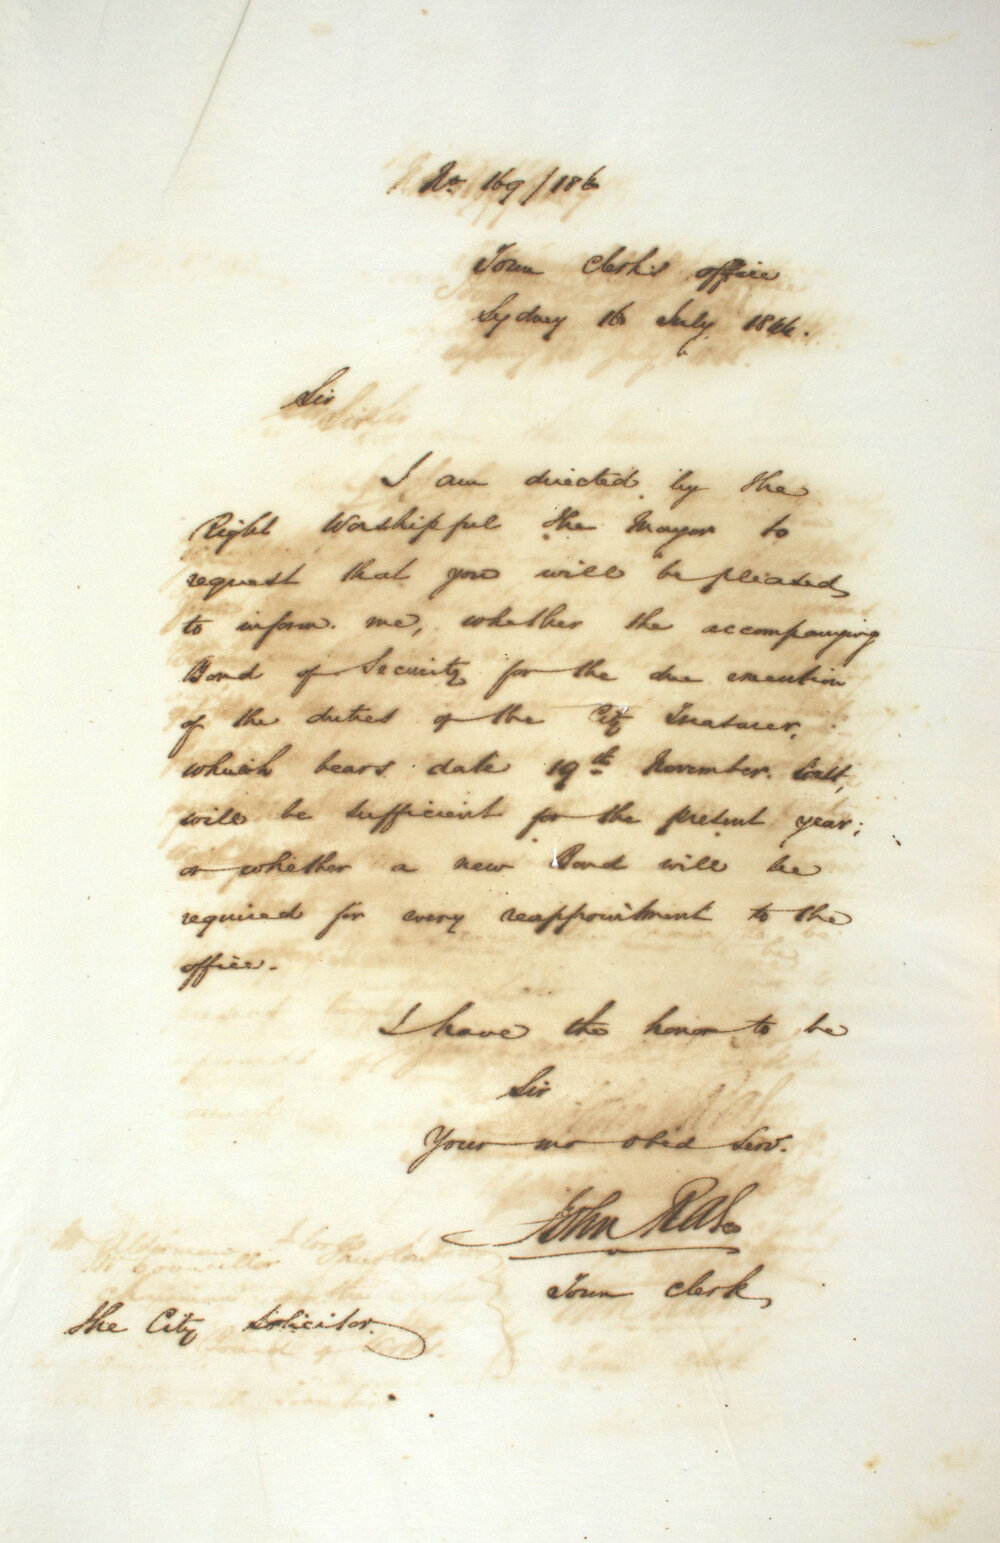 No 169/186
Town Clerk's office
Sydney 16 July 1844.
Sir
I am directed by the
Right Worshipful the Mayor to
request that you will be pleased
to inform me, whether the accompanying
Bond of Security for the due execution
of the duties of the City Treasurer,
which bears date 19th November last,
will be sufficient for the present year;
or whether a new Bond will be
required for every reappointment to the
office.
I have the honor to be
Sir
Your mo obed Serv.
John Rae
Town Clerk
The City Solicitor.